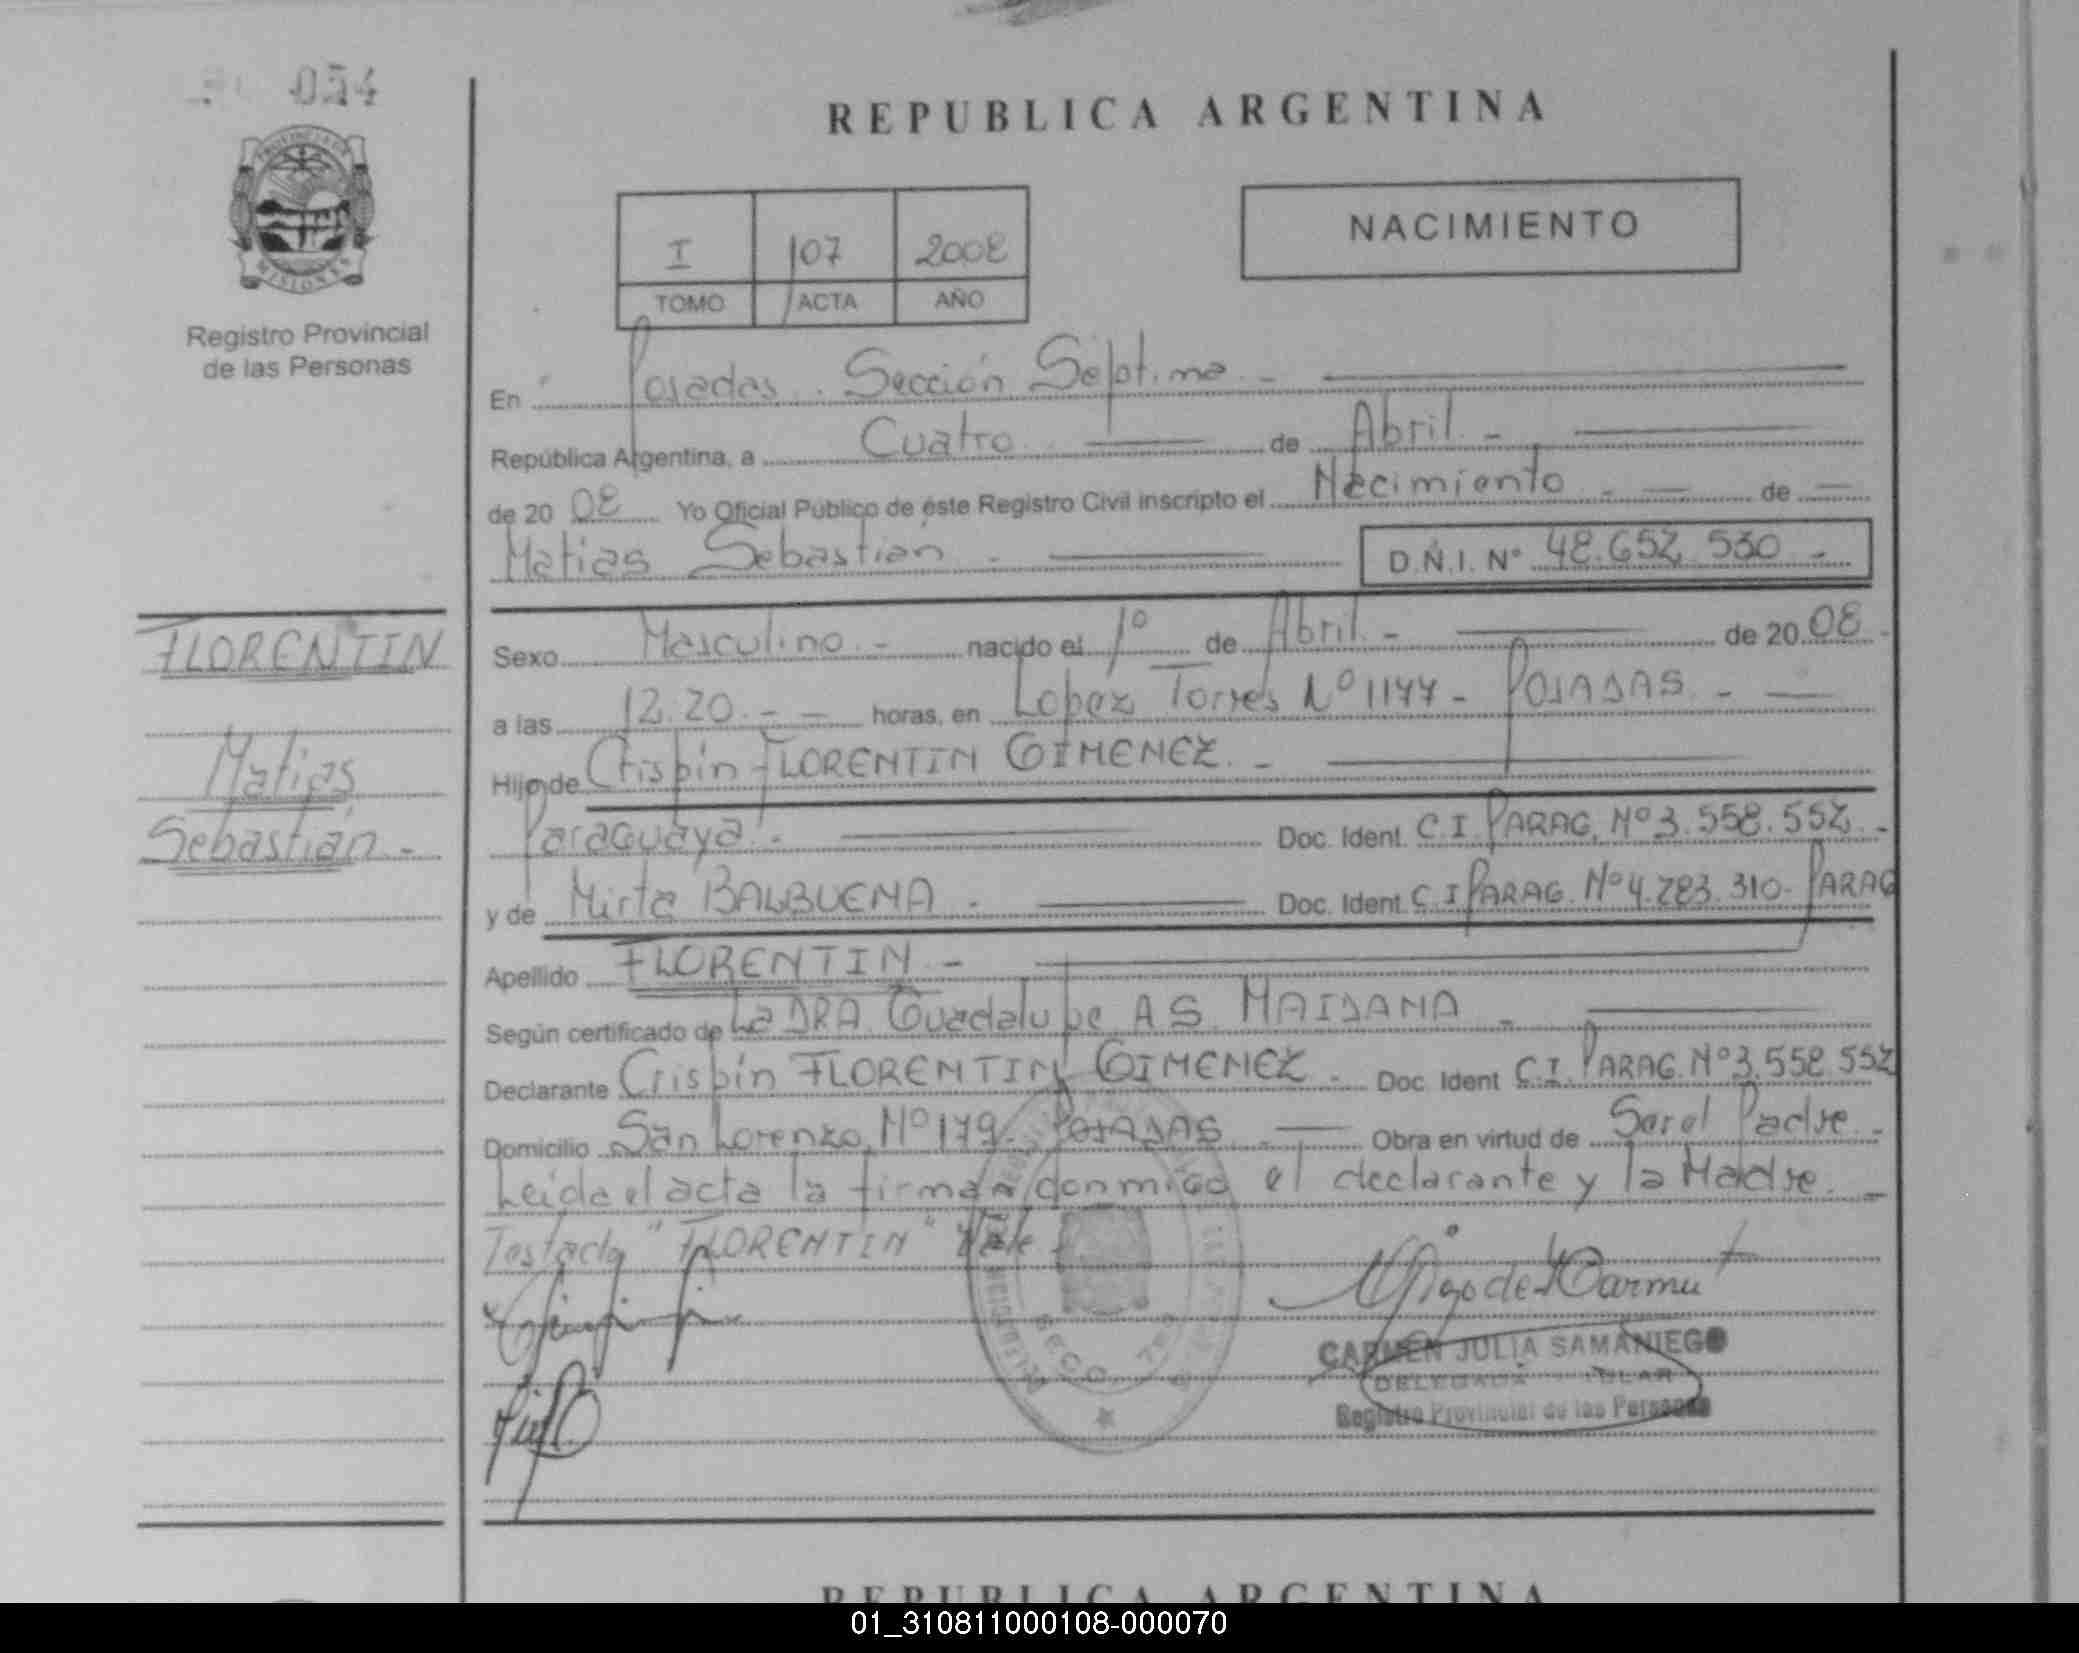 054
PROVINCIA DE
MISIONES
Registro Provincial
de las Personas
REPUBLICA ARGENTINA
I 107 2008
TOMO ACTA AÑO
NACIMIENTO
En Posadas. Sección Séptima. -
República Argentina, a Cuatro de Abril. -
de 20 08 Yo Oficial Público de éste Registro Civil inscripto el Nacimiento - - de -
Matias Sebastián - D.N.I. N° 48.652.530 -
FLORENTIN
Matias
Sebastián. -
Sexo Masculino. - nacido el 1° de Abril. - de 20 08 -
a las 12.20. - - horas, en Lopez Torres N° 1177 - POSADAS. -
Hijo de Crispín FLORENTIN GIMENEZ. -
Paraguaya. - Doc. Ident. C.I. PARAG. N° 3.558.552. -
y de Mirta BALBUENA - Doc. Ident. C.I PARAG. N° 4.283.310 - PARAG
Apellido FLORENTIN. -
Según certificado de La DRA. Guadalupe A.S. MAIDANA -
Declarante Crispín FLORENTIN GIMENEZ. - Doc. Ident C.I. PARAG. N° 3.558.552
Domicilio San Lorenzo N° 179 - POSADAS - Obra en virtud de Ser el Padre. -
Leida el acta la firman conmigo el declarante y la Madre. -
Testado "FLORENTIN" Vale.
SECC. 7ma
CARMEN JULIA SAMANIEGO
DELEGADA TITULAR
Registro Provincial de las Personas
REPUBLICA ARGENTINA
01_310811000108-000070